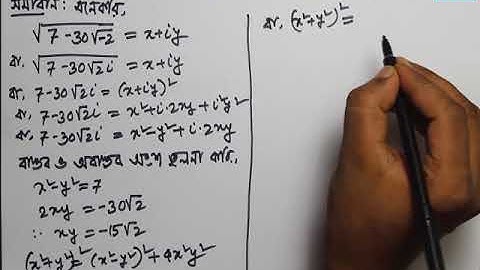 সমাধান: মনেকরি,
√(7-30√-2) = x+iy
বা, √(7-30√2i) = x+iy
বা, 7-30√2i = (x+iy)²
বা, 7-30√2i = x²+i.2xy+i²y²
বা, 7-30√2i = x²-y²+i.2xy
বাস্তব ও অবাস্তব অংশ তুলনা করি,
x²-y²=7
2xy = -30√2
∴ xy = -15√2
(x²+y²)² = (x²-y²)²+4x²y²
বা, (x²+y²)² =